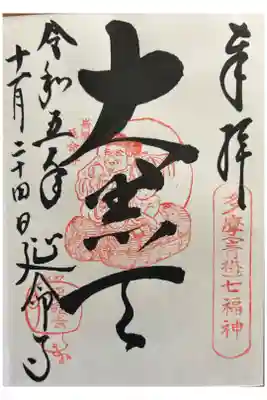 奉拝
多摩(青梅)七福神
大黒天
令和五年
十一月二十四日 延命寺